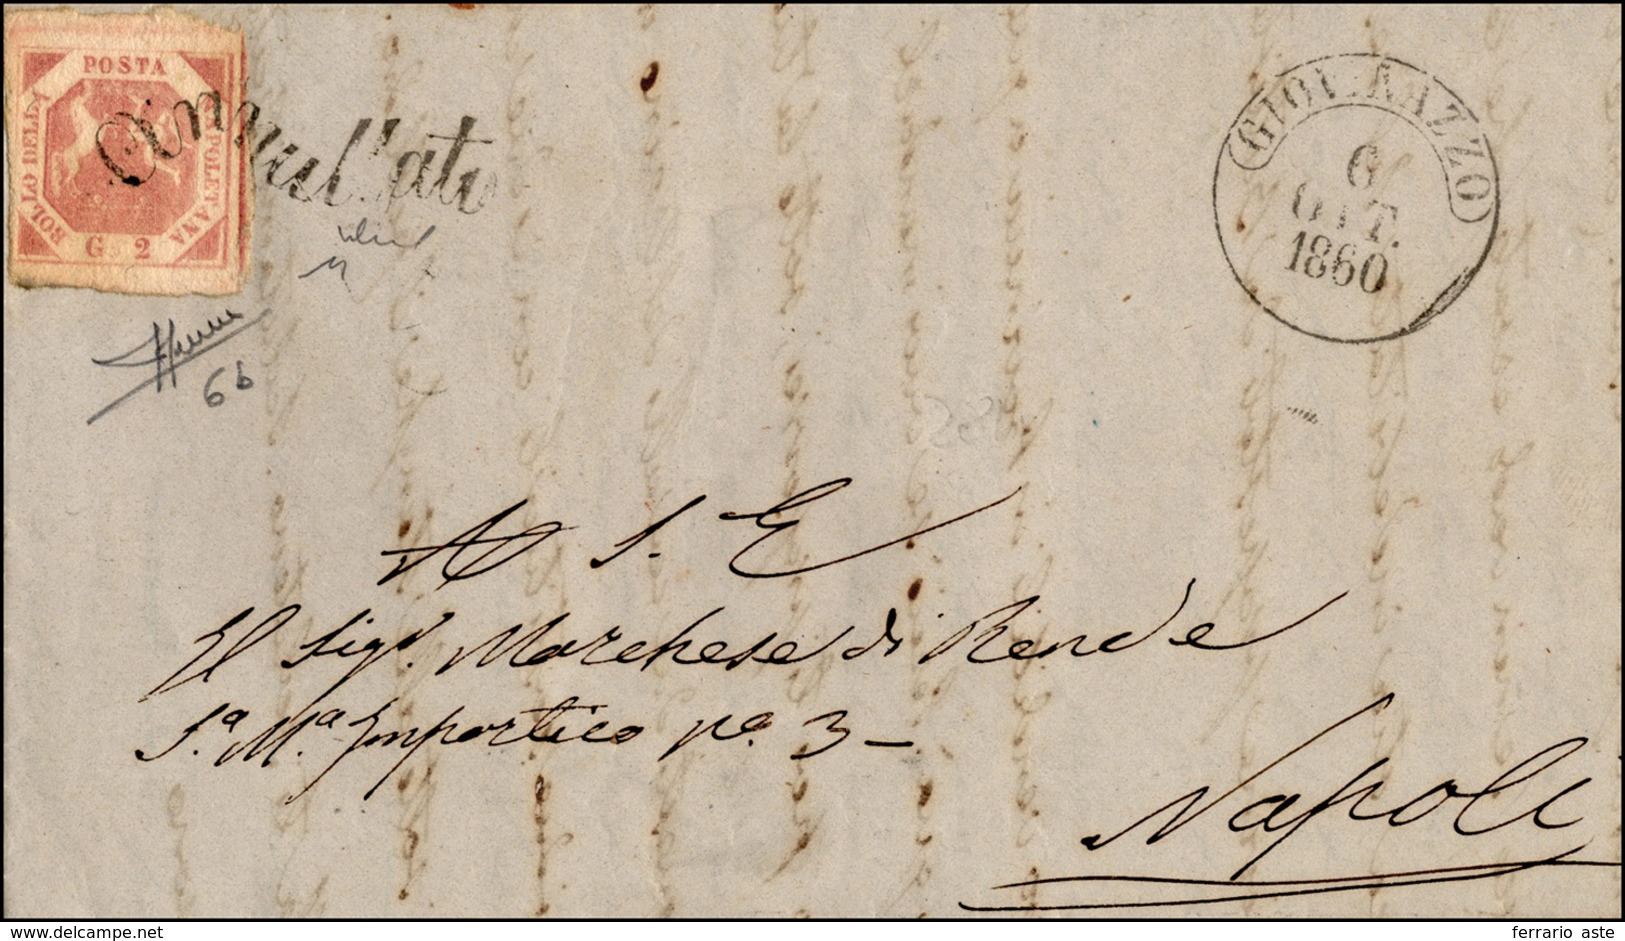 POSTA
BOLLO DELLA
NAPOLETANA
G. 2
Annullato
GIOVINAZZO
6
OTT.
1860
6b
A S. E.
Il Sigr. Marchese di Rende
Sa. Ma. Inportico no. 3 –
Napoli
www.delcampe.net
ferrario aste